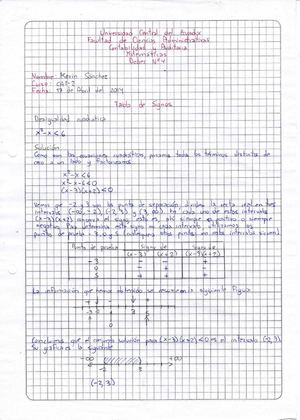 Universidad Central del Ecuador
Facultad de Ciencias Administrativas
Contabilidad y Auditoría
Matemáticas
Deber Nº4
Nombre: Kevin Sánchez
Curso:
Fecha: 17 de Abril del 2014
Tabla de Signos
Desigualdad cuadrática
x²-x<6
Solución
Como son las ecuaciones cuadráticas, pasamos todos los términos distintos de
cero a un lado y factorizamos
x²-x<6
x²-x-6<0
(x-3)(x+2)<0
Vemos que -2 y 3 son los puntos de separación, dividen la recta real en tres
intervalos (-∞,-2), (-2,3) y (3,∞). En cada uno de estos intervalos
(x-3)(x+2) conserva el signo esto es, ahí siempre es positivo o siempre
negativo. Para determinar este signo en cada intervalo, utilizamos los
puntos de prueba -3, 0 y 5 (cualquiera otros puntos en estos intervalos sirven)
Punto de prueba Signo de Signo de
(x-3) (x+2) (x-3)(x+2)
-3 - - +
0 - + -
5 + + +
La información que hemos obtenido se resume en la siguiente Figura
+ - +
-3 0 3 5
Concluimos que el conjunto solución para (x-3)(x+2)<0 es el intervalo (-2,3)
Su gráfica es la siguiente
-∞ +∞
-2 3
(-2,3)